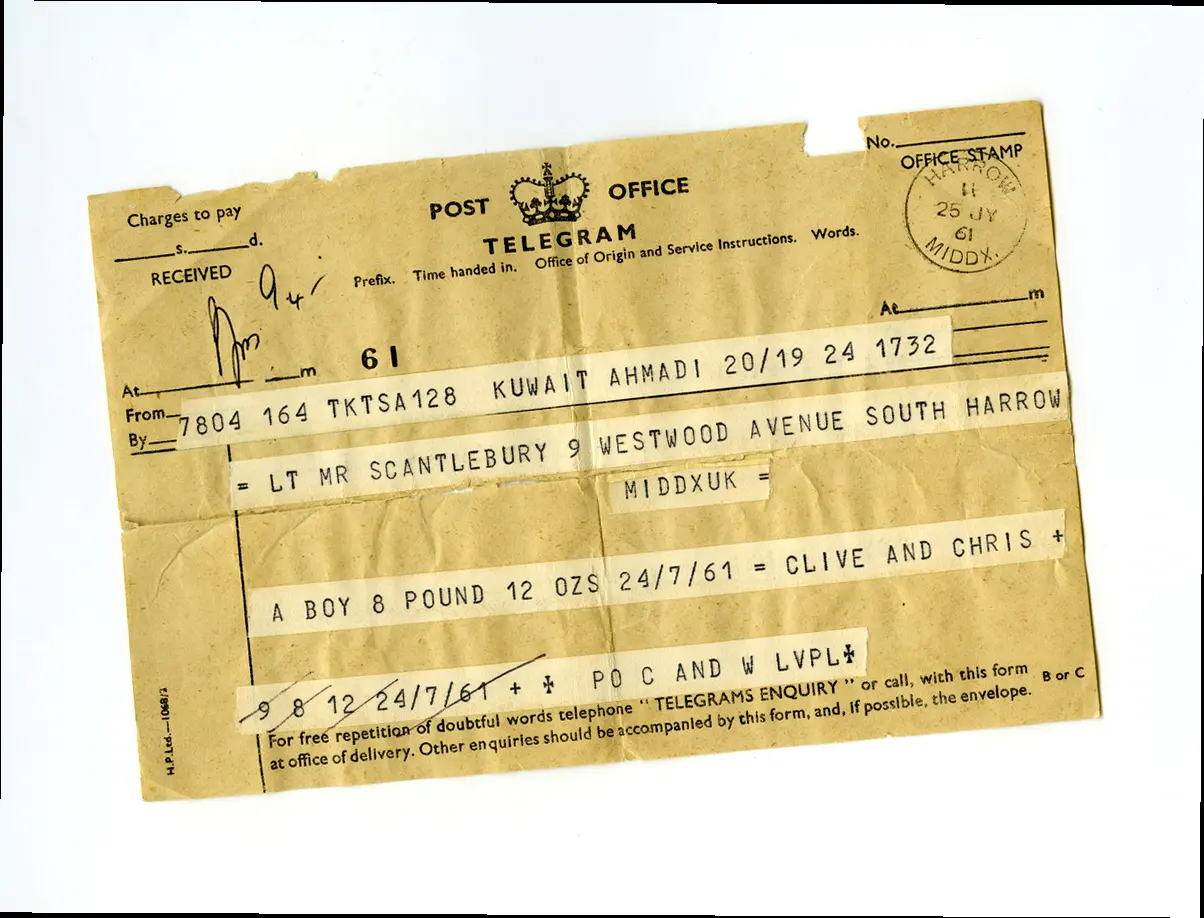 Charges to pay
s. d.
RECEIVED
POST OFFICE
TELEGRAM
Prefix. Time handed in. Office of Origin and Service Instructions. Words.
No.
OFFICE STAMP
HARROW
11
25 JY
61
MIDDX.
At m
61
At m
From
By
7804 164 TKTSA128 KUWAIT AHMADI 20/19 24 1732
= LT MR SCANTLEBURY 9 WESTWOOD AVENUE SOUTH HARROW
MIDDXUK =
A BOY 8 POUND 12 OZS 24/7/61 = CLIVE AND CHRIS +
9 8 12 24/7/61 + ✠ PO C AND W LVPL✠
For free repetition of doubtful words telephone "TELEGRAMS ENQUIRY" or call, with this form
at office of delivery. Other enquiries should be accompanied by this form, and, if possible, the envelope.
B or C